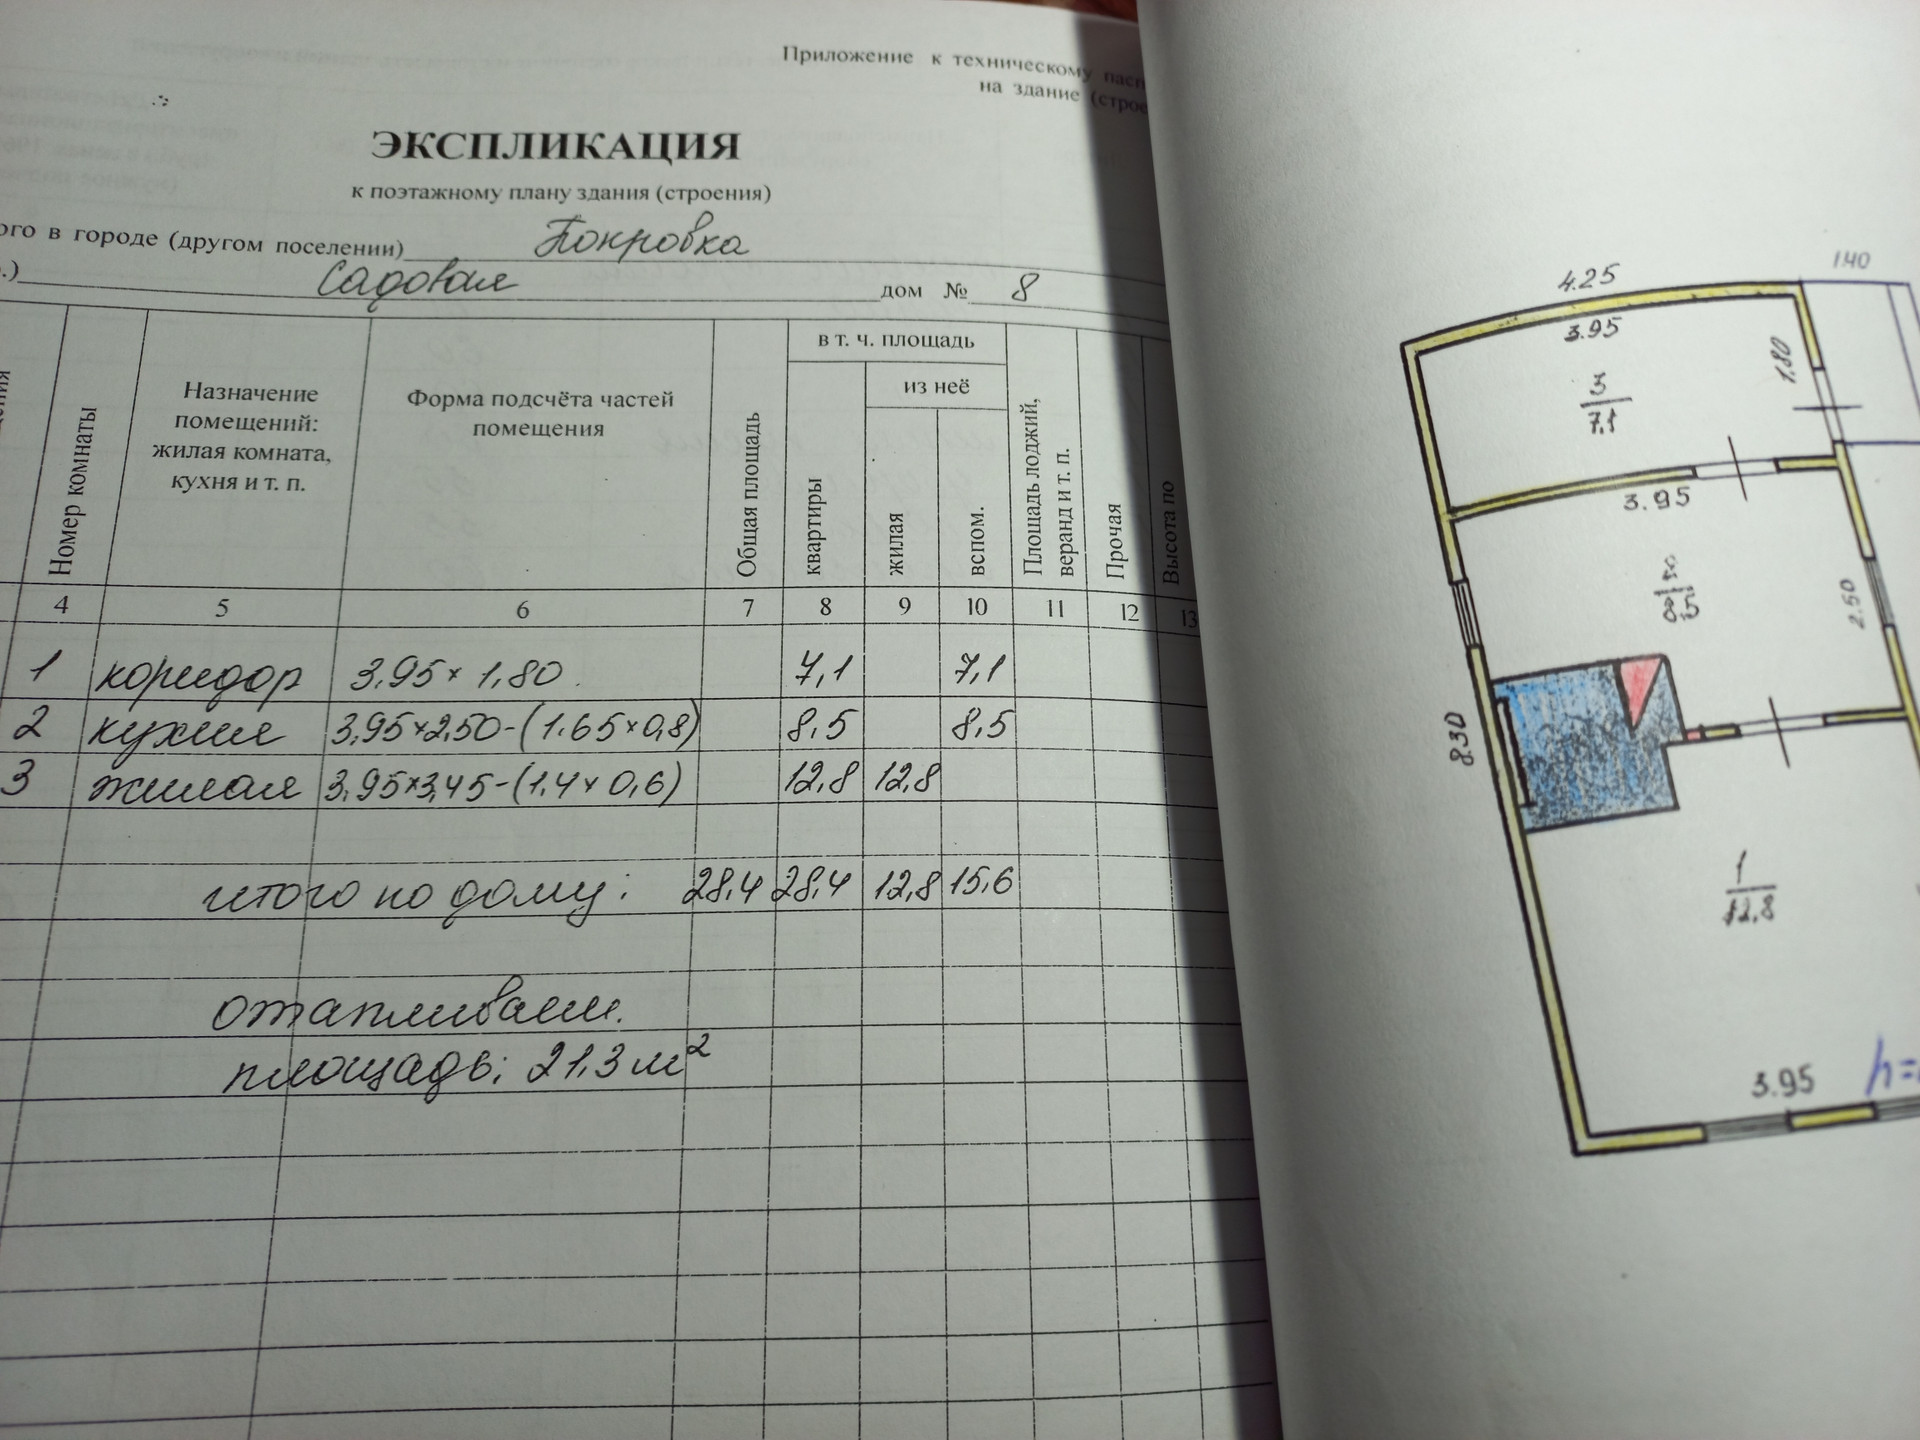 Приложение к техническому пасп
на здание (строе
ЭКСПЛИКАЦИЯ
к поэтажному плану здания (строения)
ого в городе (другом поселении) Покровка
.) Садовая дом № 8
ения
Номер комнаты
Назначение
помещений:
жилая комната,
кухня и т. п.
Форма подсчёта частей
помещения
Общая площадь
в т. ч. площадь
квартиры
из неё
жилая
вспом.
Площадь лоджий,
веранд и т. п.
Прочая
Высота по
4 5 6 7 8 9 10 11 12 13
1 коридор 3,95 × 1,80 7,1 7,1
2 кухня 3,95×2,50-(1.65×0,8) 8,5 8,5
3 жилая 3,95×3,45-(1,4×0,6) 12,8 12,8
итого по дому: 28,4 28,4 12,8 15,6
отапливаем.
площадь: 21,3 м²
1.40
4.25
3.95
1,80
3
7,1
3.95
8,5
2.50
8.30
1
12,8
3.95
h=